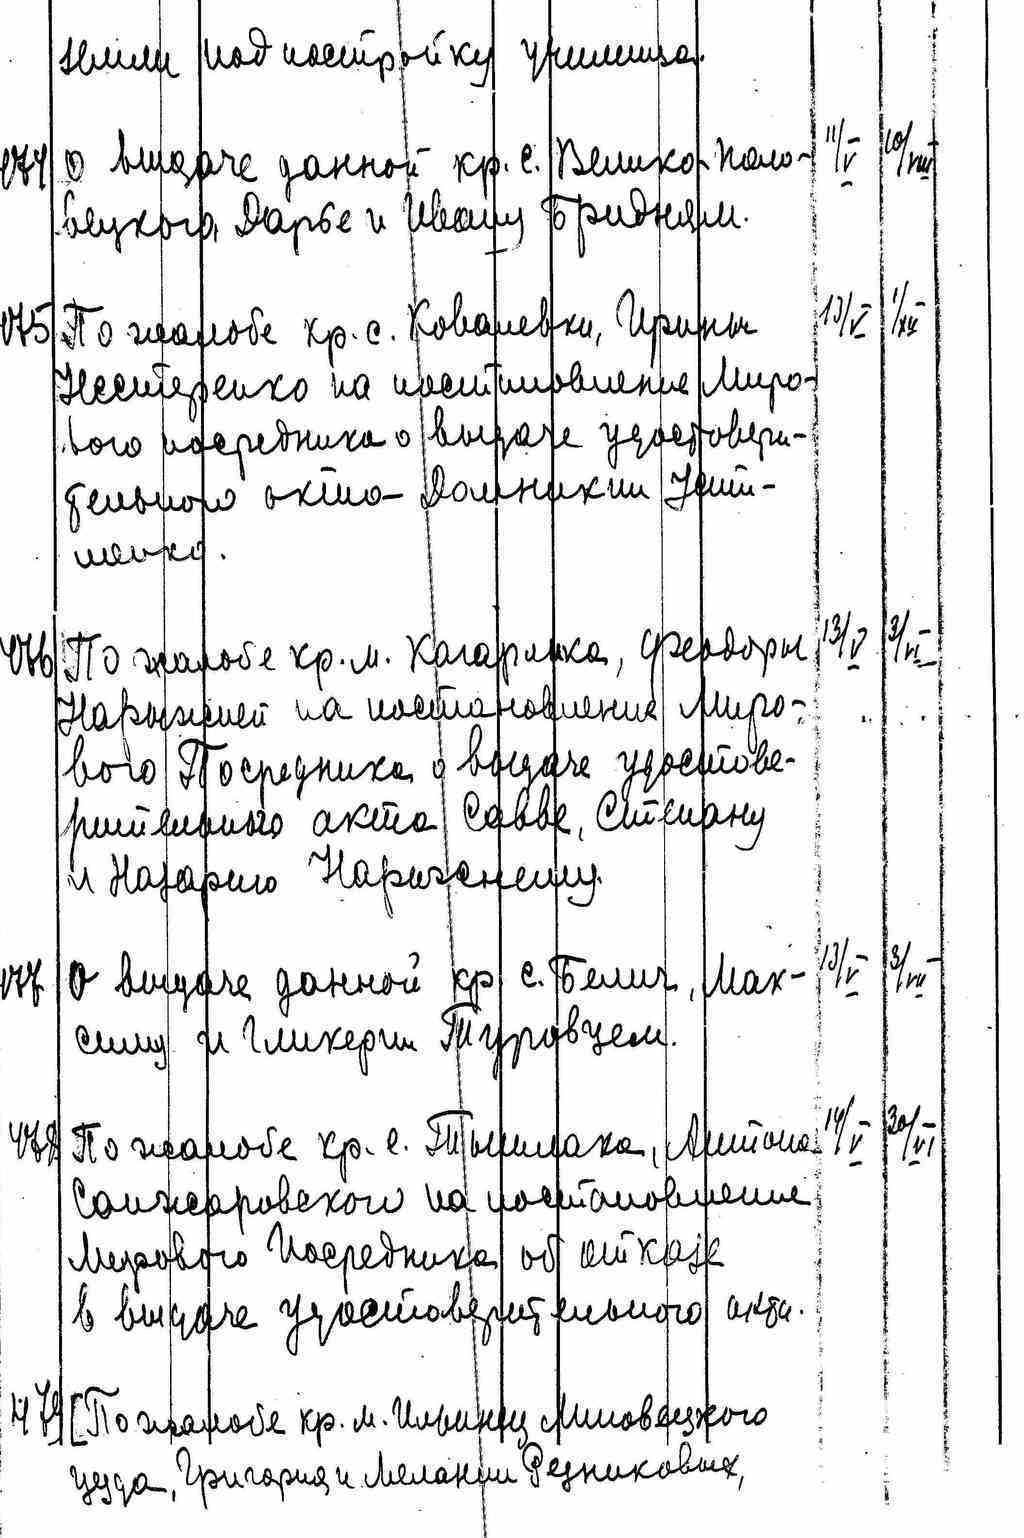 земли под постройку училища.
474 О выдаче данной кр. с. Велико-Поло- 11/V 10/VIII
вецкого, Дарье и Ивану Бридням.
475 По жалобе кр. с. Ковалевки, Ирины 13/V 1/XII
Нестеренко на постановление Миро-
вого посредника о выдаче удостовери-
тельного акта Домникии Усти-
менко.
476 По жалобе кр. м. Кагарлыка, Феодоры 13/V 3/VI
Нарыжней на постановление Миро-
вого Посредника о выдаче удостове-
рительного акта Савве, Степану
и Назарию Нарижнему.
477 О выдаче данной кр с. Белич, Мак- 13/V 3/VII
симу и Гликерии Туровцем.
478 По жалобе кр. с. Триллиса, Антона 14/V 30/VI
Санжаровского на постановление
Мирового Посредника об отказе
в выдаче удостоверительного акта.
479 [По жалобе кр. м. Ильинец Липовецкого
уезда, Григория и Мелании Резниковых,